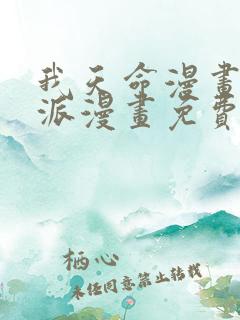 我天命漫畫
派漫畫免費
栖心
未经同意禁止转载